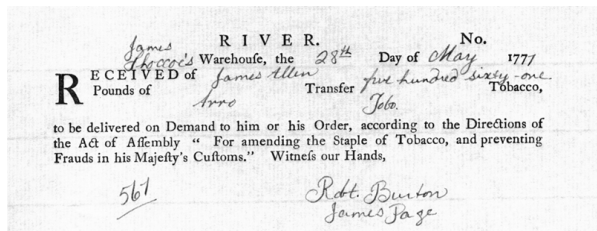 James RIVER. No.
Shoccoe's Warehouſe, the 28th Day of May 1771
RECEIVED of James Allen five hundred sixty-one
Pounds of Arro Transfer Tobo. Tobacco,
to be delivered on Demand to him or his Order, according to the Directions of
the Act of Aſſembly “ For amending the Staple of Tobacco, and preventing
Frauds in his Majeſty's Cuſtoms.” Witneſs our Hands,
561
Robt. Burton
James Page